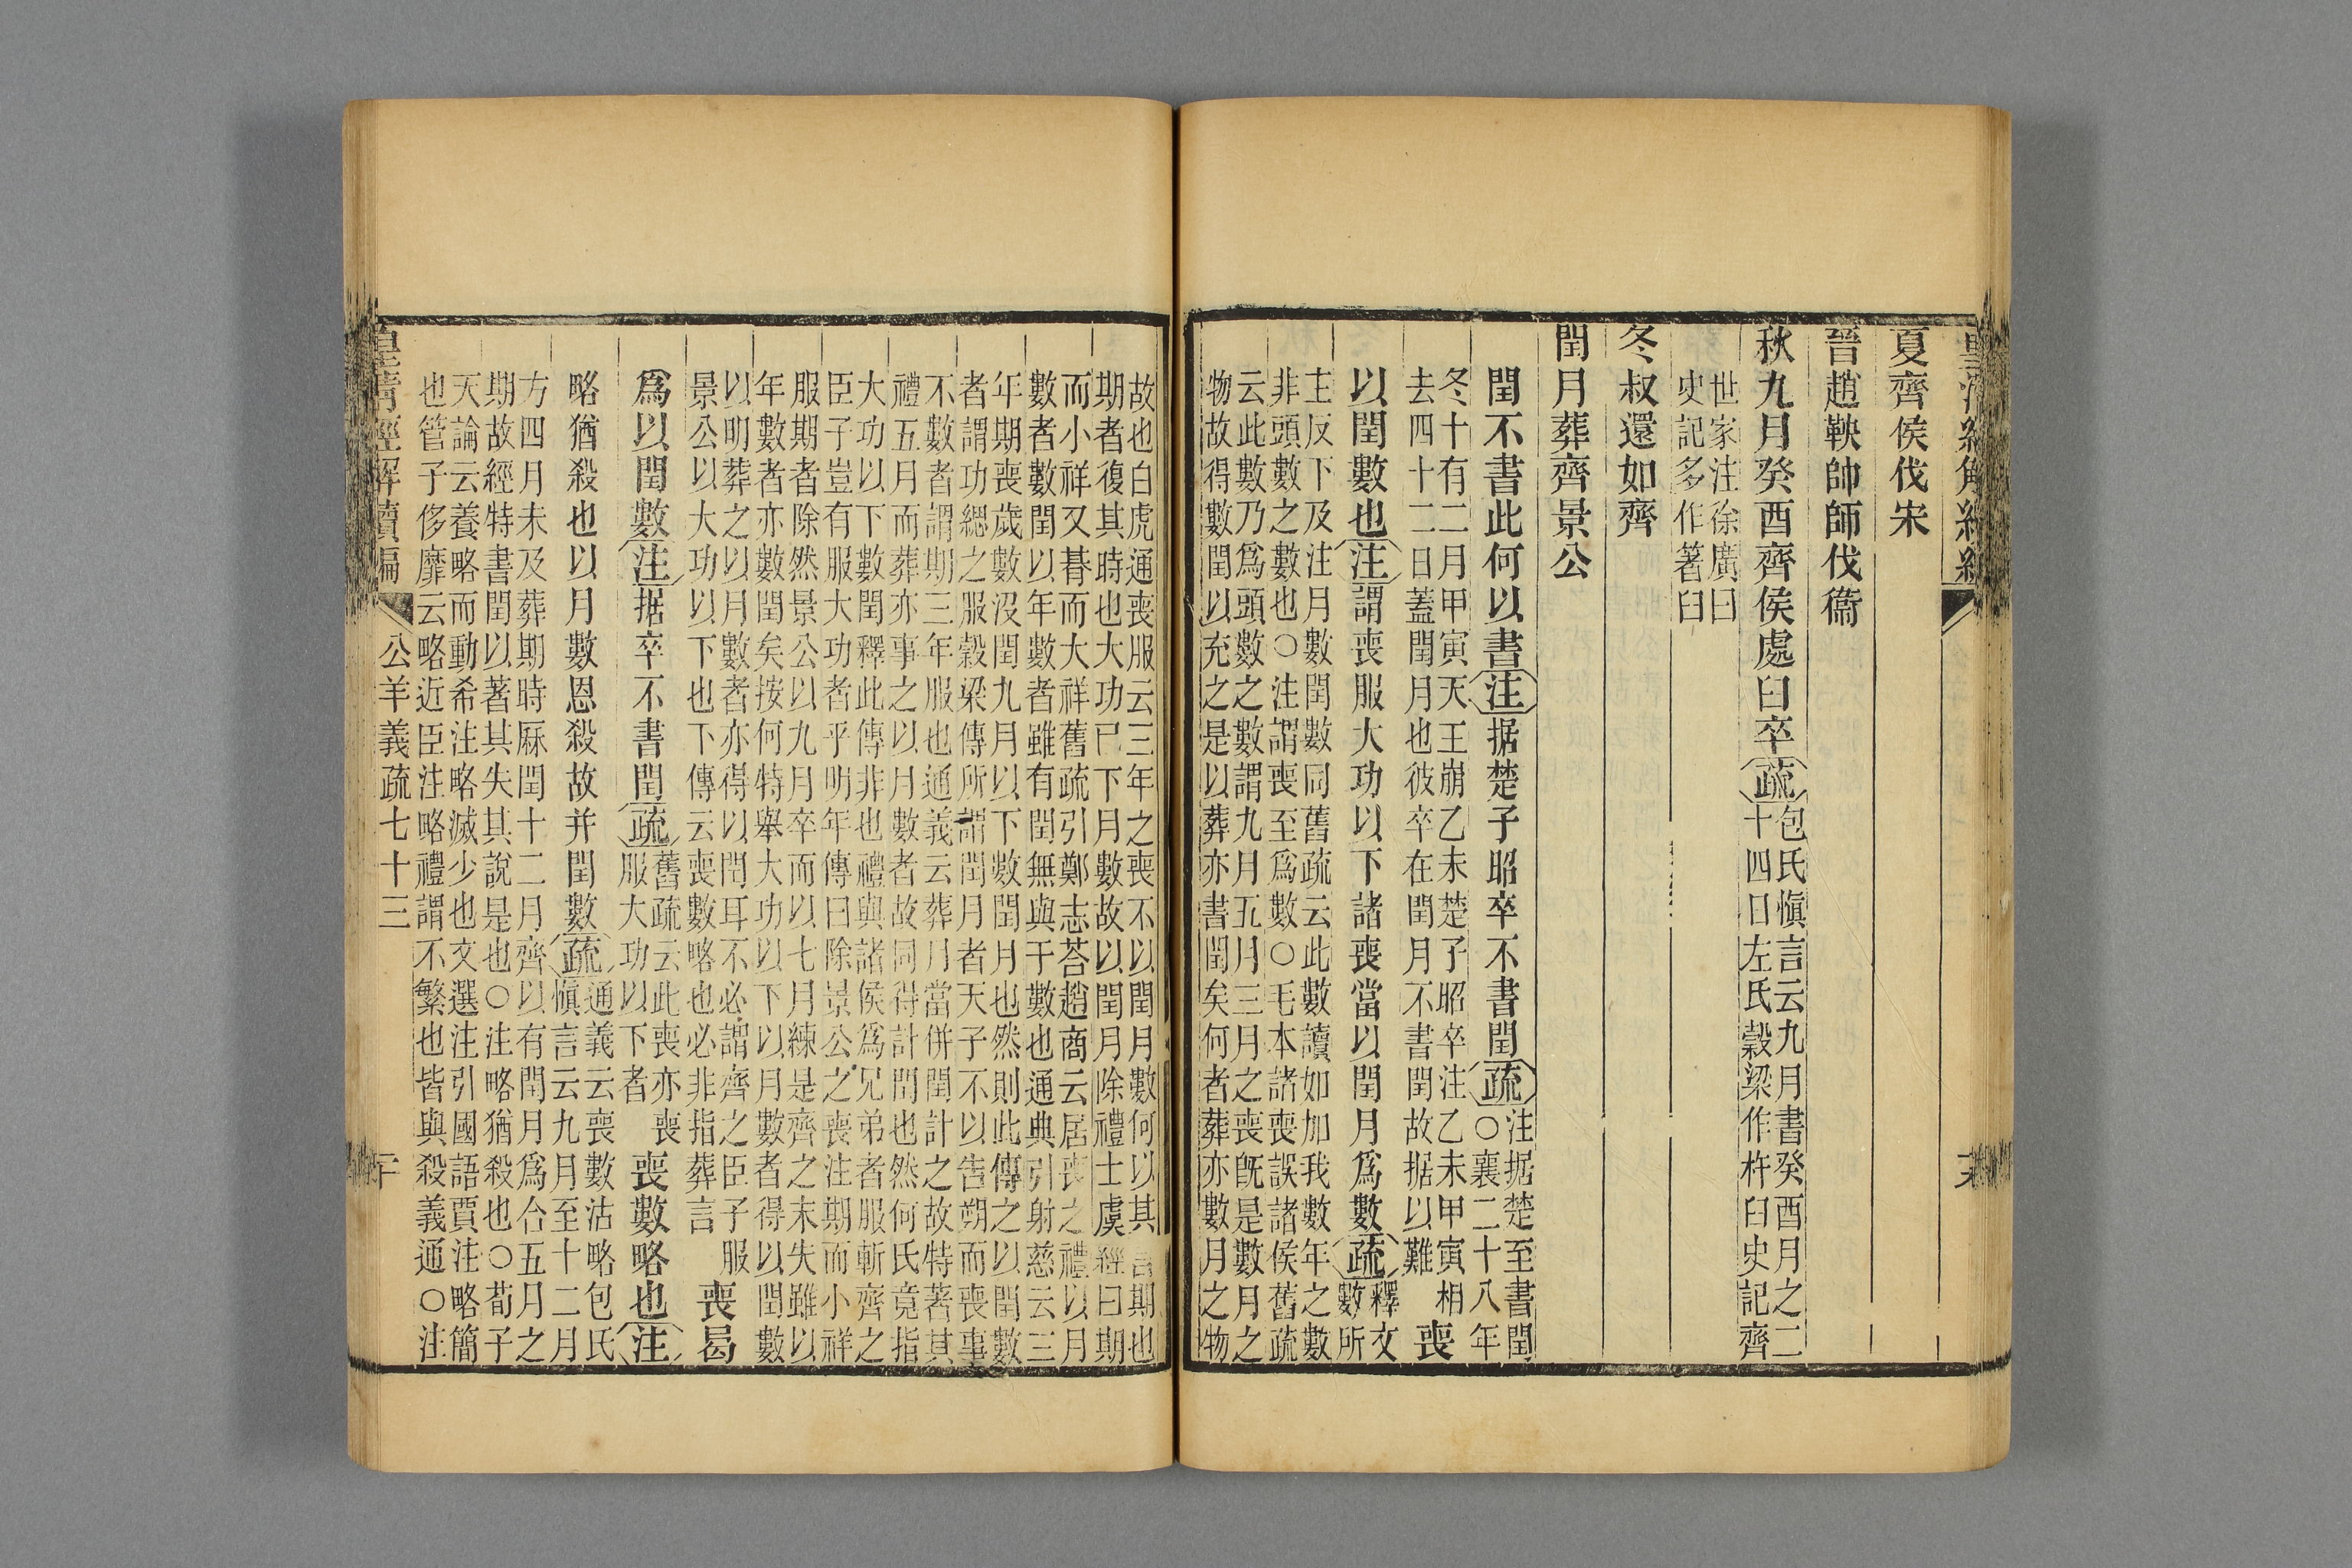 夏齊侯伐宋
晉趙鞅帥師伐衞
秋九月癸酉齊侯處臼卒疏
包氏愼言云九月書癸酉月之二
十四日左氏穀梁作杵臼史記齊
世家注徐廣曰
史記多作著臼
冬叔還如齊
閏月葬齊景公
閏不書此何以書注据楚子昭卒不書閏疏
注据楚至書閏
○襄二十八年
冬十有二月甲寅天王崩乙未楚子昭卒注乙未甲寅相
去四十二日蓋閏月也彼卒在閏月不書閏故据以難
喪
以閏數也注謂喪服大功以下諸喪當以閏月爲數疏
釋文
數所
主反下及注月數閏數同舊疏云此數讀如加我數年之數
非頭數之數也○注謂喪至爲數○毛本諸喪喪誤諸侯舊疏
云此數乃爲頭數之數謂九月五月三月之喪旣是數月之
物故得數閏以充之是以葬亦書閏矣何者葬亦數月之物
故也白虎通喪服云三年之喪不以閏月數何以其言期也
期者復其時也大功已下月數故以閏月除禮士虞經曰期
而小祥又朞而大祥舊疏引鄭志荅趙商云居喪之禮以月
數者數閏以年數者雖有閏無與于數也通典引射慈云三
年期喪歲數沒閏九月以下數閏月也然則此傳之以閏數
者謂功緦之服穀梁傳所謂閏月者天子不以告朔而喪事
不數者謂期三年服也通義云葬月當併閏計之故特著其
禮五月而葬亦事之以月數者故同得計閏也然何氏竟指
大功以下數閏釋此傳非也禮與諸侯爲兄弟者服斬齊之
臣子豈有服大功者乎明年傳曰除景公之喪注期而小祥
服期者除然景公以九月卒而以七月練是齊之末失雖以
年數者亦數閏矣按何特舉大功以下以月數者得以閏數
以明葬之以月數者亦得以閏耳不必謂齊之臣子服
景公以大功以下也下傳云喪數略也必非指葬言
喪曷
爲以閏數注据卒不書閏疏
舊疏云此喪亦喪
服大功以下者
喪數略也注
略猶殺也以月數恩殺故并閏數疏
通義云喪數沽略包氏
愼言云九月至十二月
方四月未及葬期時厤閏十二月齊以有閏月爲合五月之
期故經特書閏以著其失其說是也○注略猶殺也○荀子
天論云養略而動希注略滅少也文選注引國語賈注略簡
也管子侈靡云略近臣注略禮謂不繁也皆與殺義通○注
皇清經解續編
公羊義疏七十三